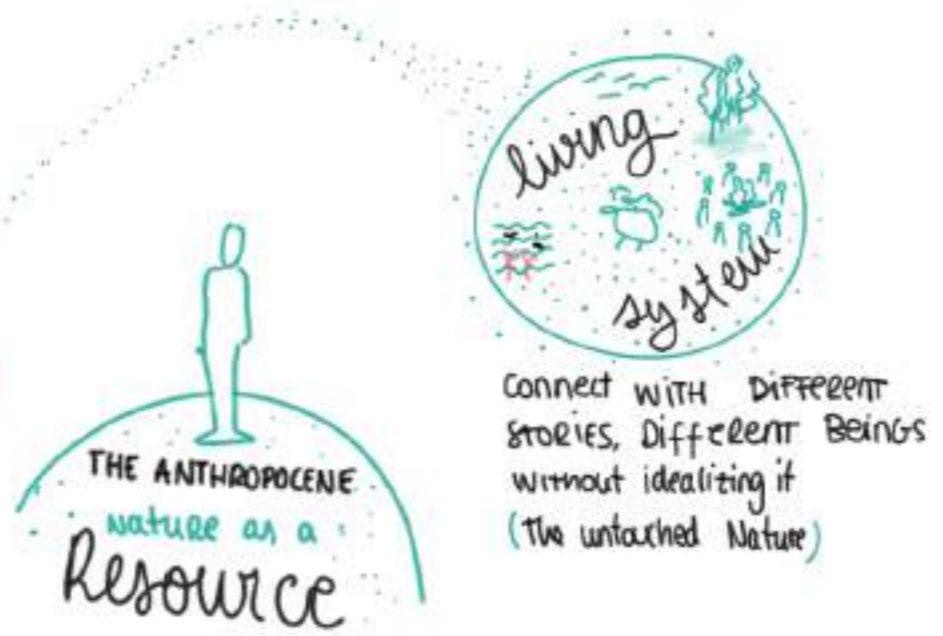 living
system
THE ANTHROPOCENE
NATURE as a
Resource
Connect WITH DIFFERENT
STORIES, DIFFERENT BEINGS
without idealizing it
(The untouched Nature)